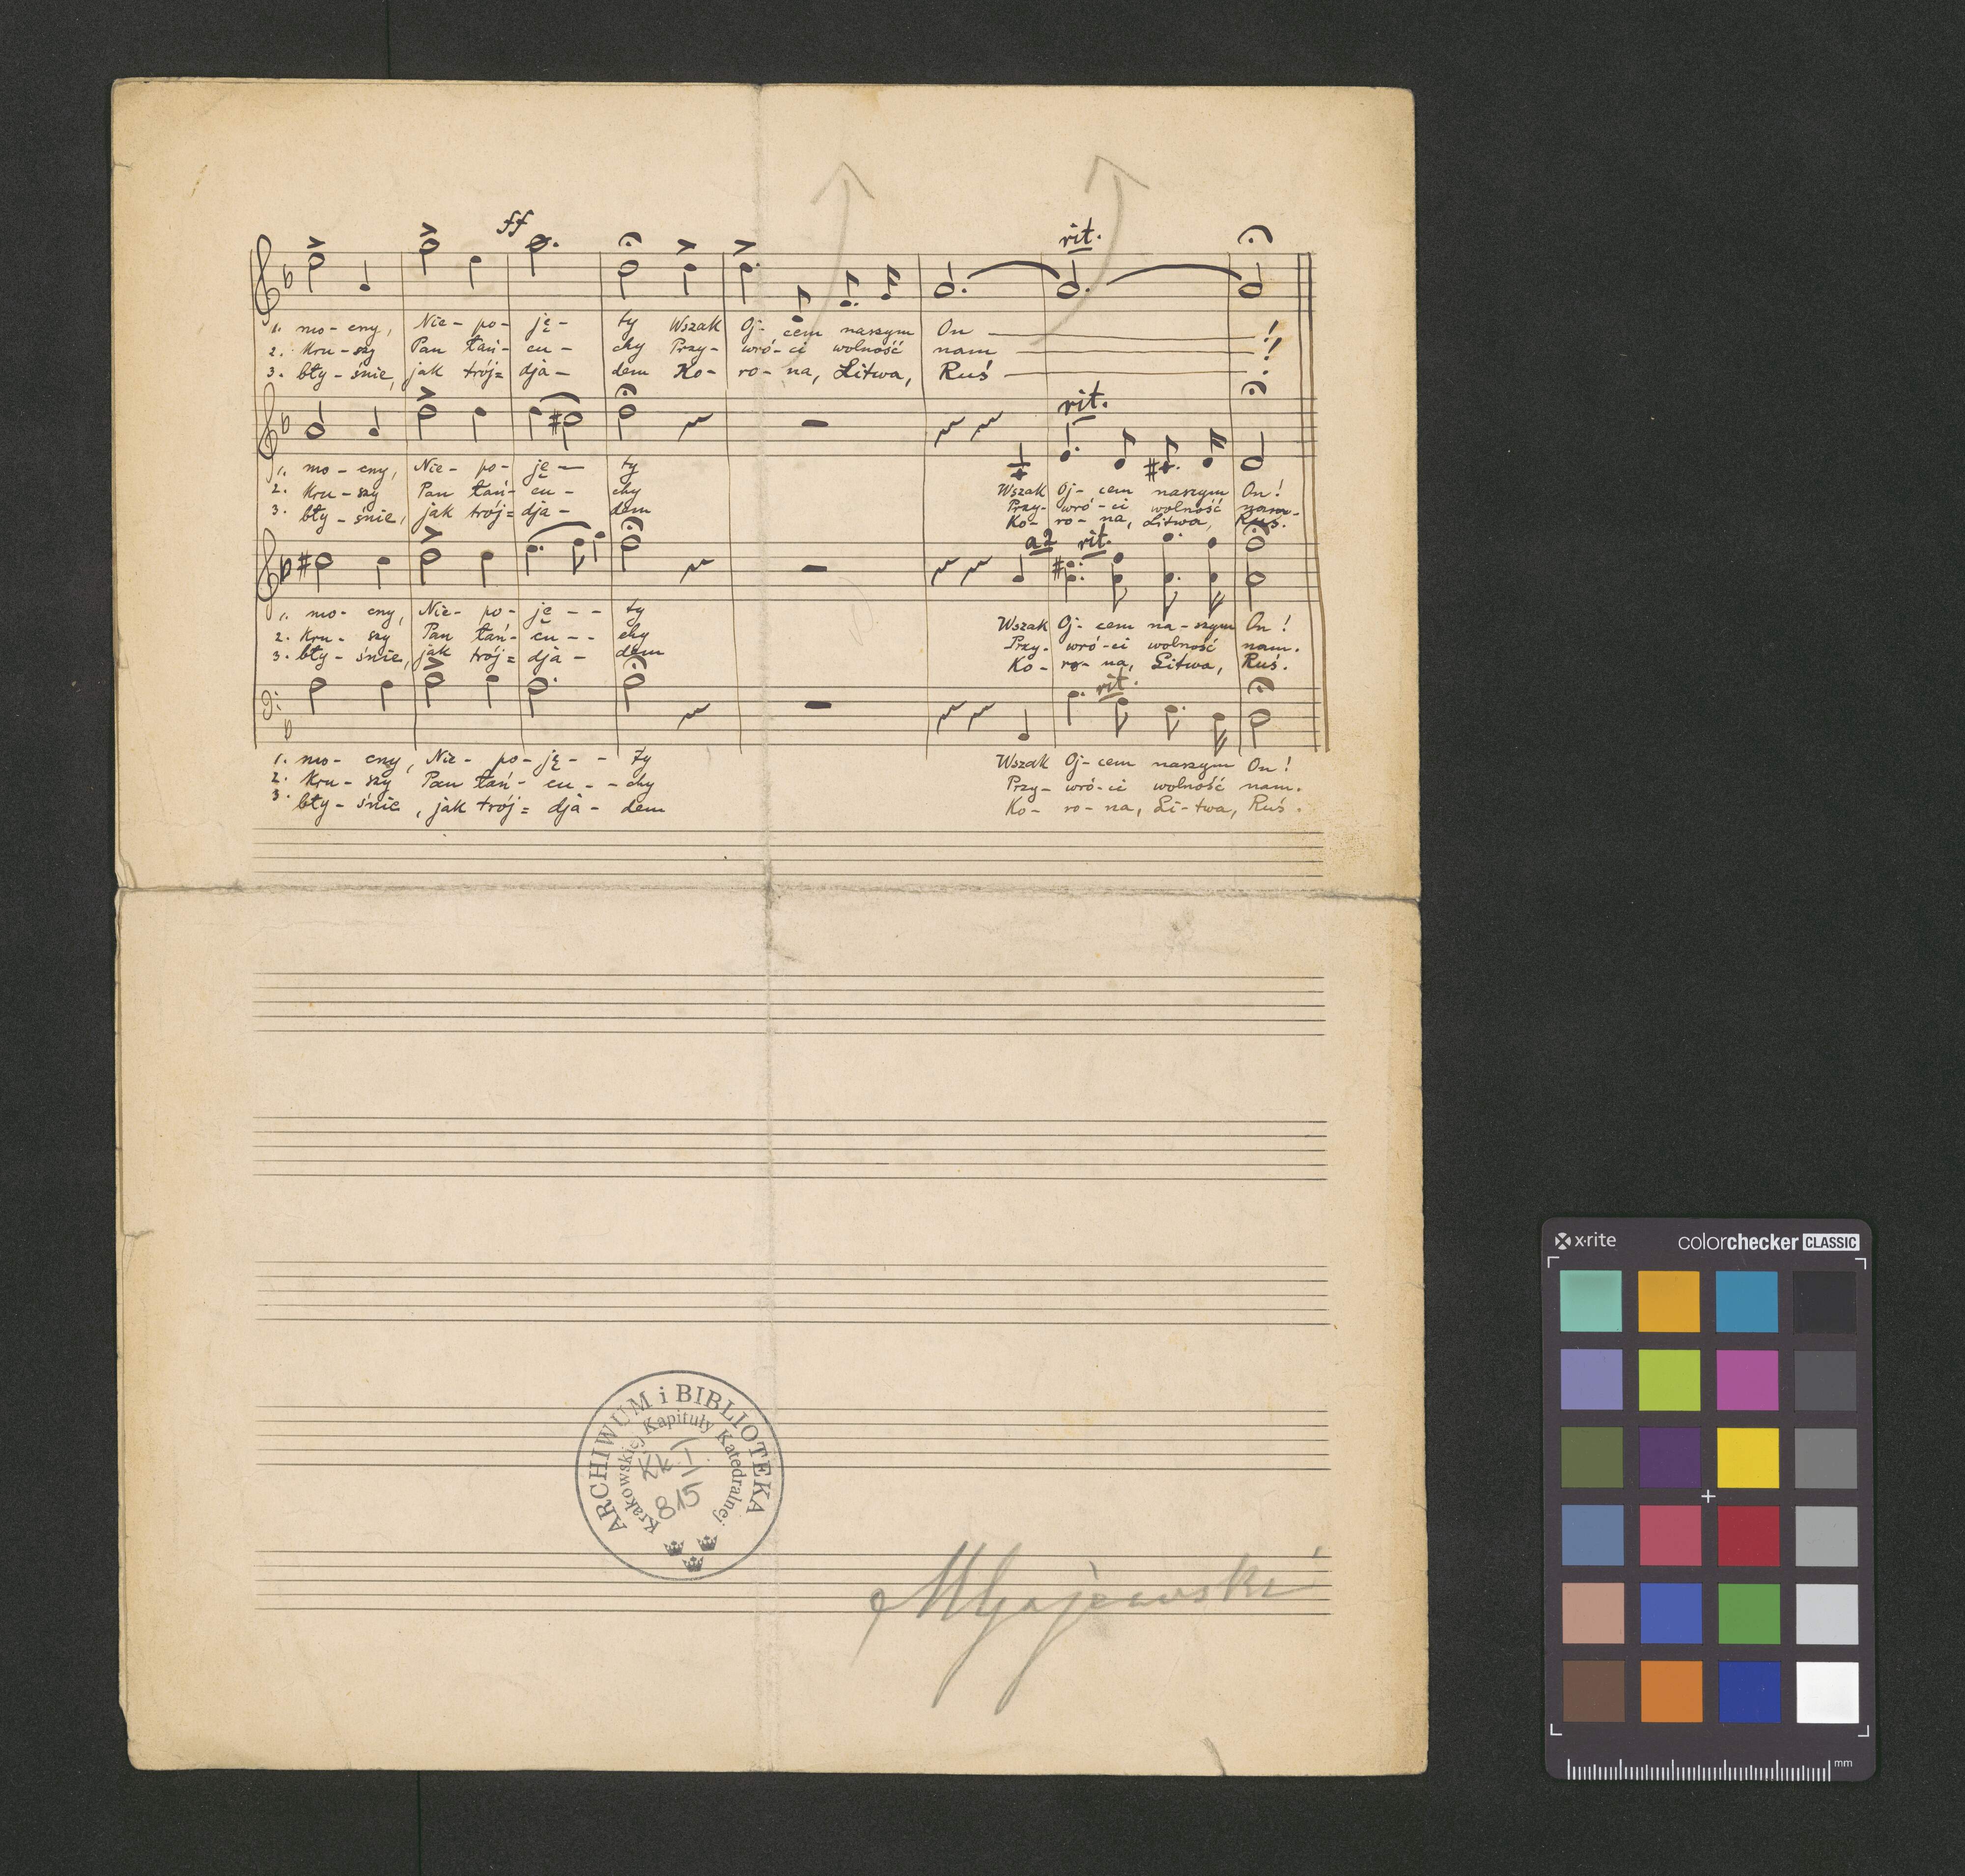 ff
rit.
1. mo - cny, Nie - po - ję - ty Wszak Oj - cem naszym On !
2. Kru - szy Pan łań - cu - chy Przy - wró - ci wolność nam !
3. bły - śnie, jak trój = dja - dem Ko - ro - na, Litwa, Ruś !
rit.
1. mo - cny, Nie - po - ję - ty Wszak Oj - cem naszym On !
2. Kru - szy Pan łań - cu - chy Przy - wró - ci wolność nam.
3. bły - śnie, jak trój = dja - dem Ko - ro - na, Litwa, Ruś.
a2 rit.
1. mo - cny, Nie - po - ję - - ty Wszak Oj - cem na - szym On !
2. Kru - szy Pan łań - cu - - chy Przy - wró - ci wolność nam.
3. bły - śnie, jak trój = dja - dem Ko - ro - na, Litwa, Ruś.
rit.
1. mo - cny, Nie - po - ję - - ty Wszak Oj - cem naszym On !
2. Kru - szy Pan łań - cu - - chy Przy - wró - ci wolność nam.
3. bły - śnie, jak trój = dja - dem Ko - ro - na, Li - twa, Ruś.
ARCHIWUM i BIBLIOTEKA
Krakowskiej Kapituły Katedralnej
Kk. I.
815
MGajewski
x·rite colorchecker CLASSIC
mm